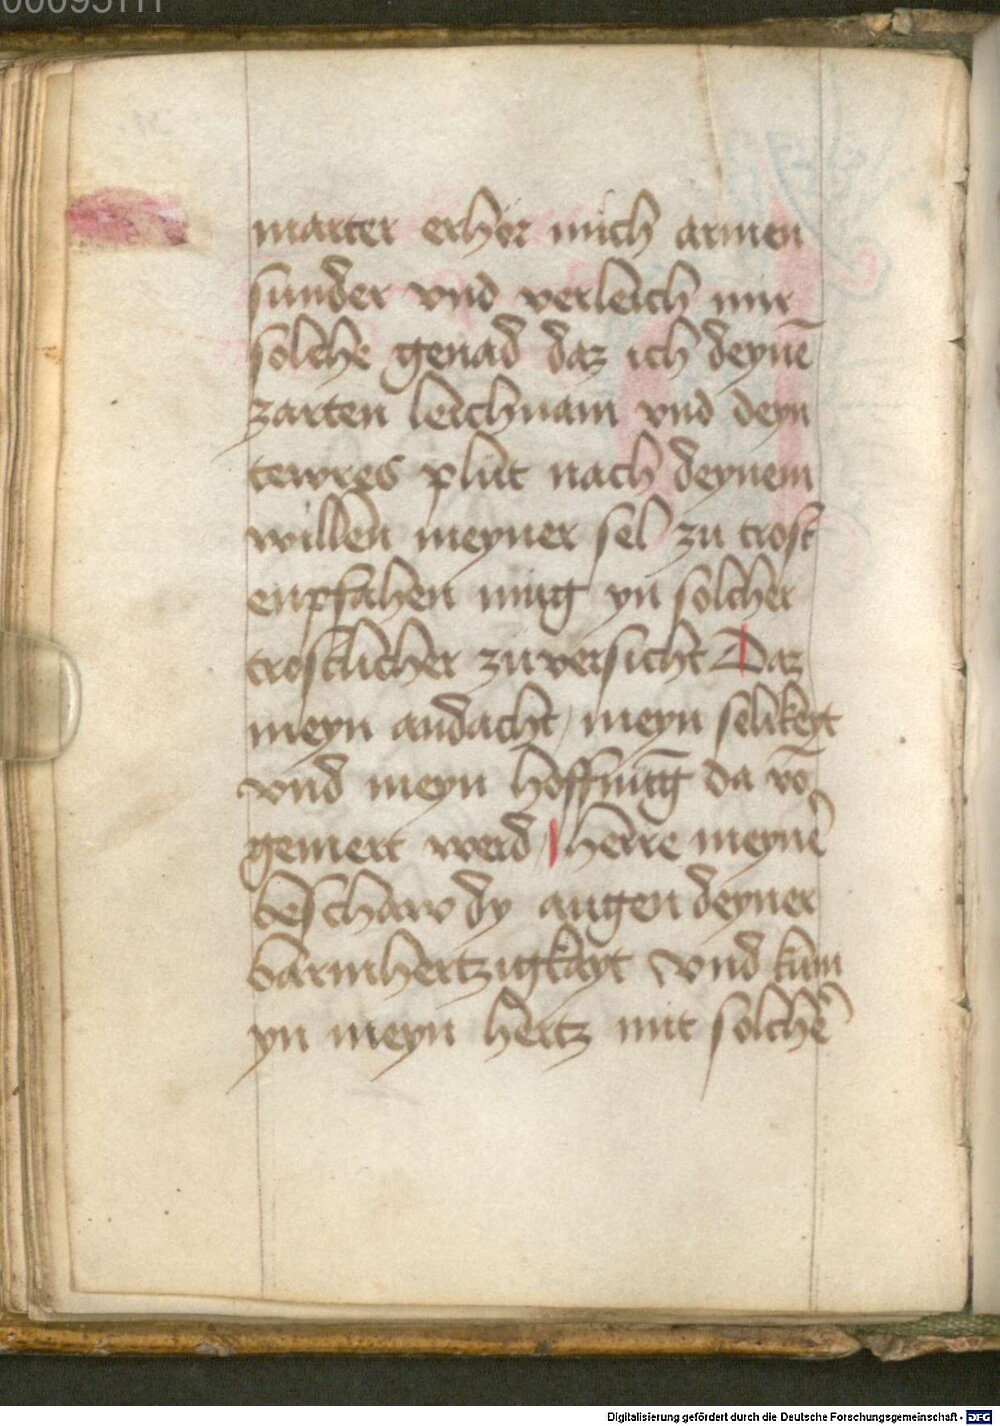 marter erhör mich armen
sunder vnd verleich mir
solche genad daz ich deynē
zarten leichnam vnd deyn
tewres plut nach deynem
willen meyner sel zu trost
enpfahen müg yn solcher
trostlicher zuversicht Daz
meyn andacht / meyn selikeyt
vnd meyn hoffnūg da vō
gemert werd / herre meynē
beschaw dy augen deyner
barmhertzigkayt vnd kum
yn meyn hertz mit solchē
Digitalisierung gefördert durch die Deutsche Forschungsgemeinschaft - DFG